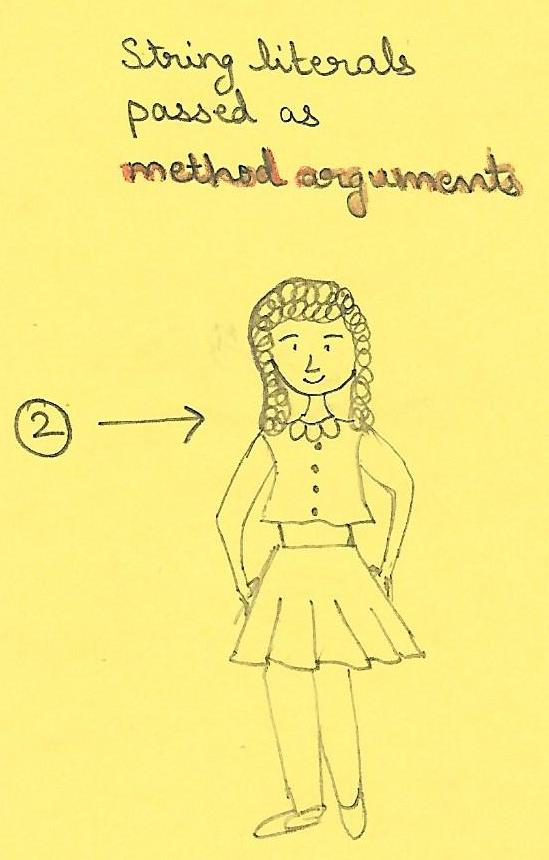 String literals
passed as
method arguments
2